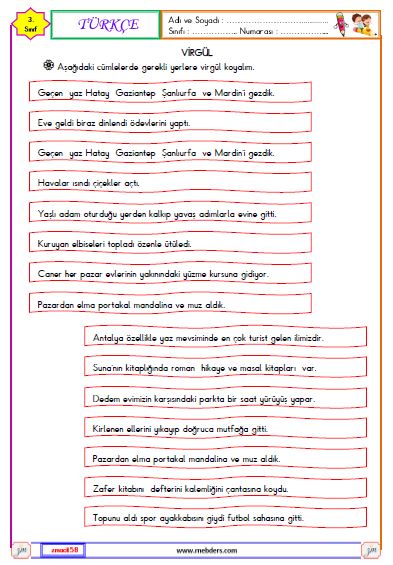 3.
Sınıf
TÜRKÇE
Adı ve Soyadı : ..............................................
Sınıfı : .................... Numarası : ......................
VİRGÜL
Aşağıdaki cümlelerde gerekli yerlere virgül koyalım.
Geçen yaz Hatay Gaziantep Şanlıurfa ve Mardin'i gezdik.
Eve geldi biraz dinlendi ödevlerini yaptı.
Geçen yaz Hatay Gaziantep Şanlıurfa ve Mardin'i gezdik.
Havalar ısındı çiçekler açtı.
Yaşlı adam oturduğu yerden kalkıp yavaş adımlarla evine gitti.
Kuruyan elbiseleri topladı özenle ütüledi.
Caner her pazar evlerinin yakınındaki yüzme kursuna gidiyor.
Pazardan elma portakal mandalina ve muz aldık.
Antalya özellikle yaz mevsiminde en çok turist gelen ilimizdir.
Suna'nın kitaplığında roman hikaye ve masal kitapları var.
Dedem evimizin karşısındaki parkta bir saat yürüyüş yapar.
Kirlenen ellerini yıkayıp doğruca mutfağa gitti.
Pazardan elma portakal mandalina ve muz aldık.
Zafer kitabını defterini kalemliğini çantasına koydu.
Topunu aldı spor ayakkabısını giydi futbol sahasına gitti.
zmacit58
www.mebders.com